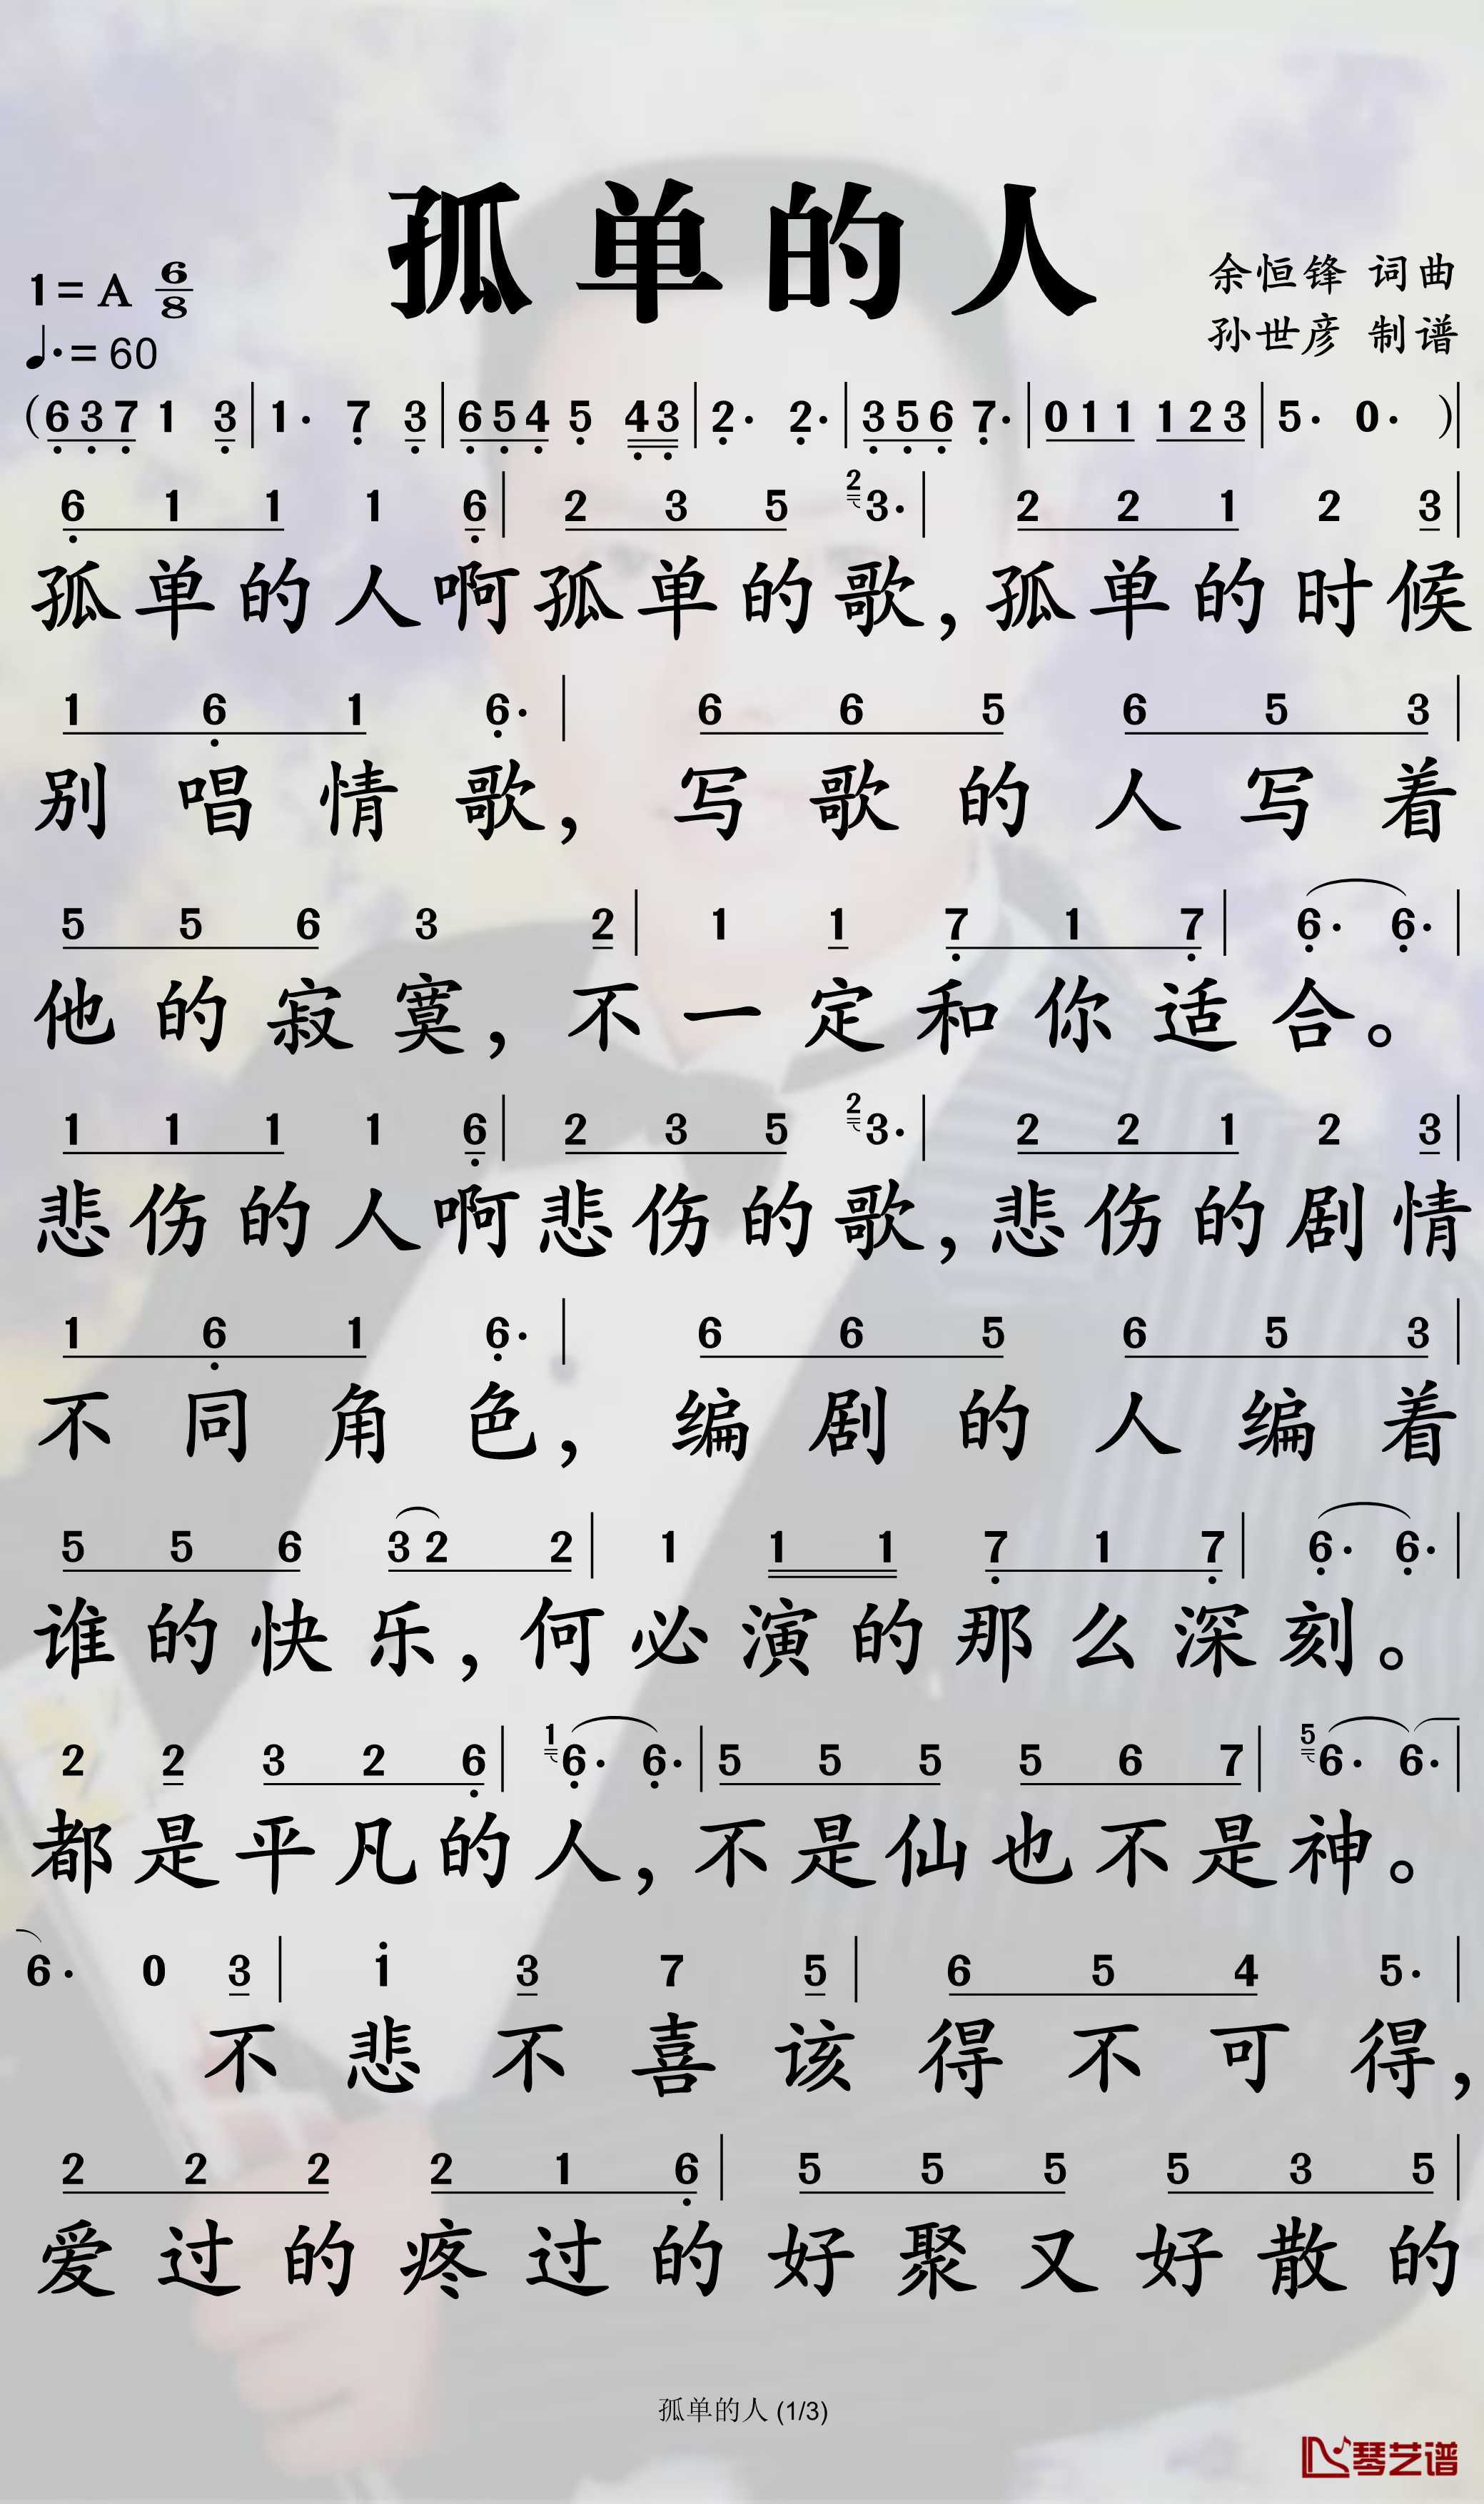 孤单的人
1=A 6/8
余恒锋 词曲
♩.=60
孙世彦 制谱
(6 3 7 1 3 | 1· 7 3 | 6 5 4 5 4 3 | 2· 2· | 3 5 6 7· | 0 1 1 1 2 3 | 5· 0· )|
6 1 1 1 6 | 2 3 5 2 3· | 2 2 1 2 3 |
孤单的人啊孤单的歌,孤单的时候
1 6 1 6· | 6 6 5 6 5 3 |
别唱情歌,写歌的人写着
5 5 6 3 2 | 1 1 7 1 7 | 6· 6· |
他的寂寞,不一定和你适合。
1 1 1 1 6 | 2 3 5 2 3· | 2 2 1 2 3 |
悲伤的人啊悲伤的歌,悲伤的剧情
1 6 1 6· | 6 6 5 6 5 3 |
不同角色,编剧的人编着
5 5 6 3 2 2 | 1 1 1 7 1 7 | 6· 6· |
谁的快乐,何必演的那么深刻。
2 2 3 2 6 | 1 6· 6· | 5 5 5 5 6 7 | 5 6· 6· |
都是平凡的人,不是仙也不是神。
6· 0 3 | 1 3 7 5 | 6 5 4 5· |
不悲不喜该得不可得,
2 2 2 2 1 6 | 5 5 5 5 3 5 |
爱过的疼过的好聚又好散的
孤单的人 (1/3)
琴艺谱